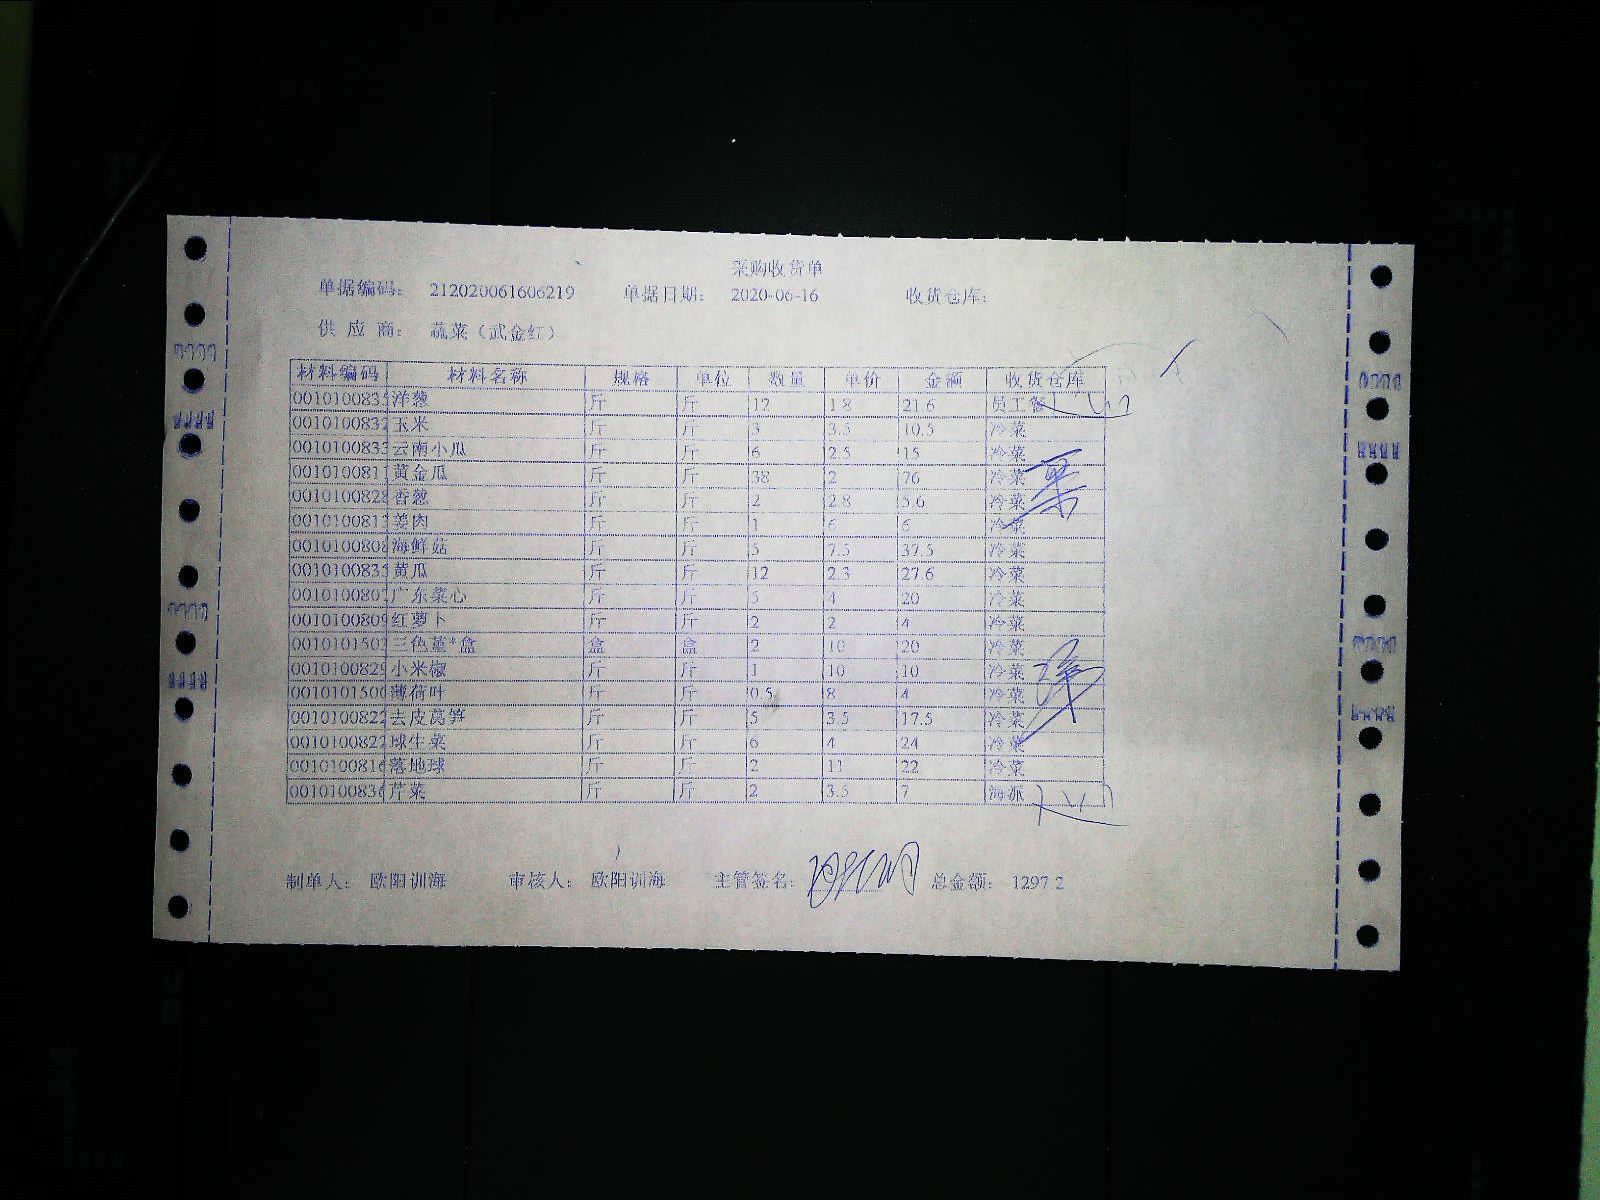 采购收货单
单据编码: 212020061606219 单据日期: 2020-06-16 收货仓库:
供应商: 蔬菜（武金红）
材料编码 材料名称 规格 单位 数量 单价 金额 收货仓库
0010100835 洋葱 斤 斤 12 1.8 21.6 员工餐
0010100832 玉米 斤 斤 3 3.5 10.5 冷菜
0010100833 云南小瓜 斤 斤 6 2.5 15 冷菜
0010100811 黄金瓜 斤 斤 38 2 76 冷菜
0010100828 香葱 斤 斤 2 2.8 5.6 冷菜
0010100813 姜肉 斤 斤 1 6 6 冷菜
0010100808 海鲜菇 斤 斤 5 7.5 37.5 冷菜
0010100835 黄瓜 斤 斤 12 2.3 27.6 冷菜
0010100807 广东菜心 斤 斤 5 4 20 冷菜
0010100809 红萝卜 斤 斤 2 2 4 冷菜
0010101502 三色堇*盒 盒 盒 2 10 20 冷菜
0010100829 小米椒 斤 斤 1 10 10 冷菜
0010101500 薄荷叶 斤 斤 0.5 8 4 冷菜
0010100822 去皮莴笋 斤 斤 5 3.5 17.5 冷菜
0010100827 球生菜 斤 斤 6 4 24 冷菜
0010100816 落地球 斤 斤 2 11 22 冷菜
0010100836 芹菜 斤 斤 2 3.5 7 海派
制单人: 欧阳训海 审核人: 欧阳训海 主管签名: 总金额: 1297.2